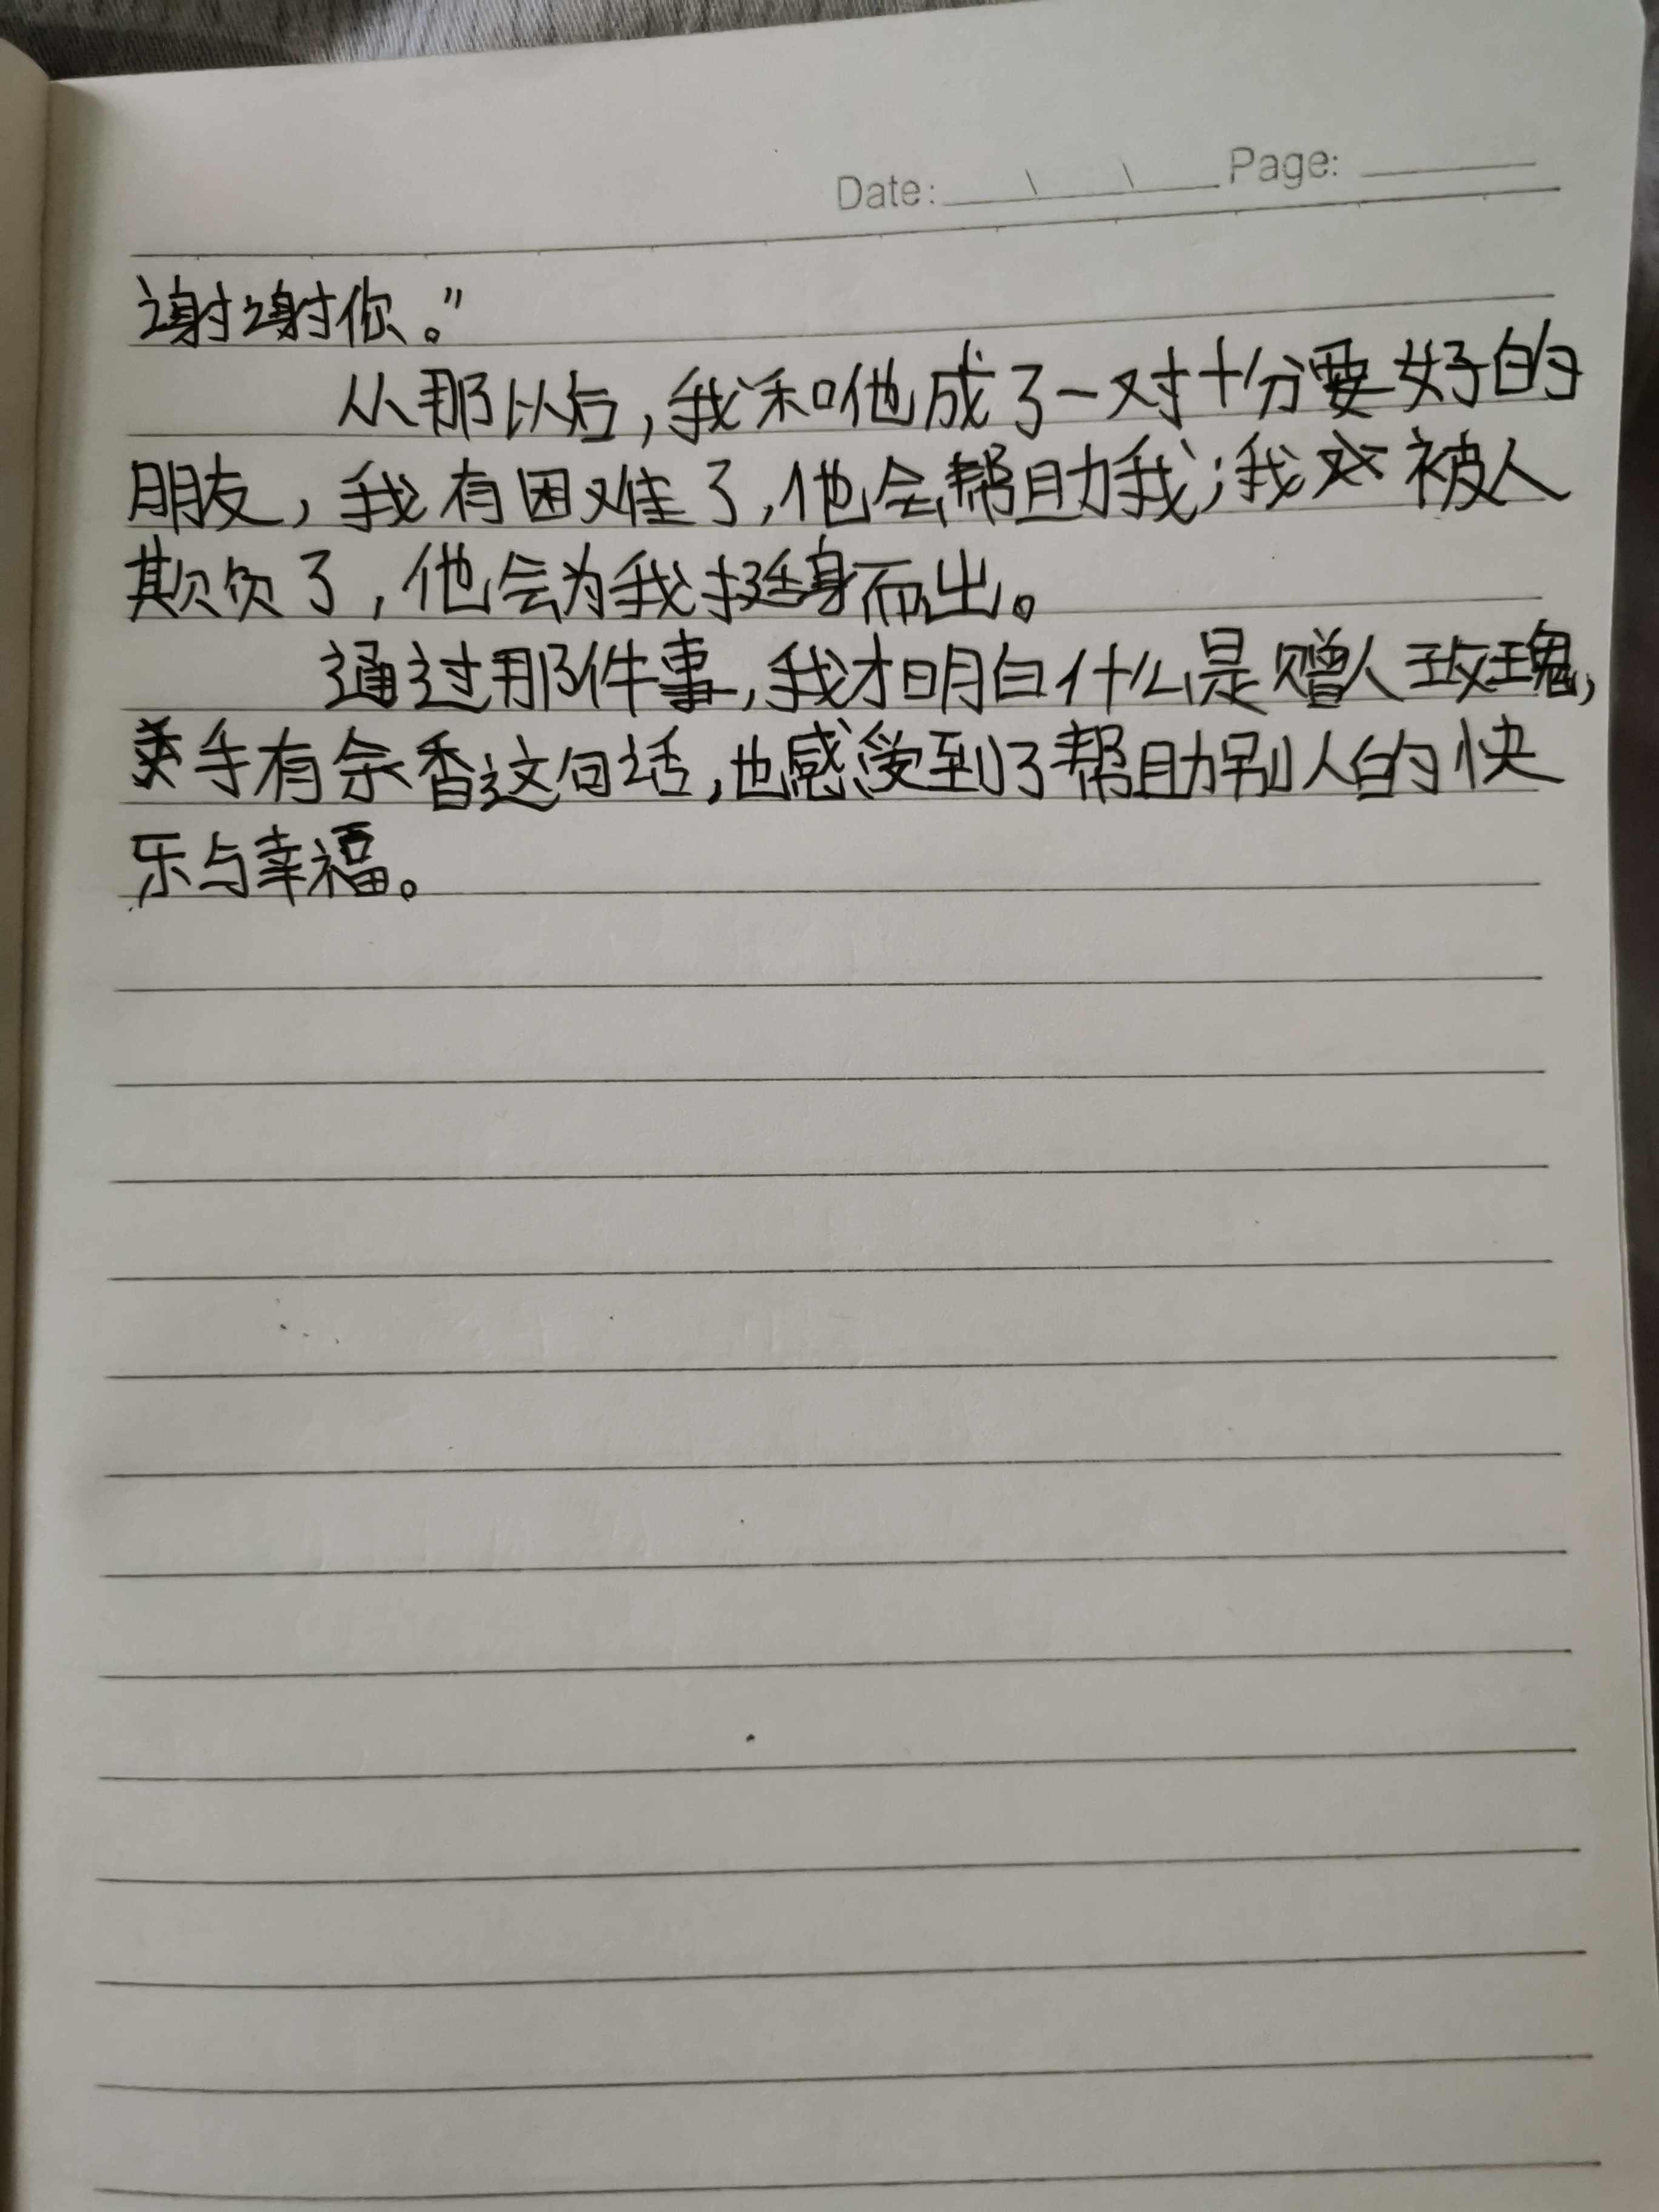 Date: \ \ Page:
谢谢你。”
从那以后，我和他成了一对十分要好的
朋友，我有困难了，他会帮助我；我被人
欺负了，他会为我挺身而出。
通过那件事，我才明白什么是赠人玫瑰，
手有余香这句话，也感受到了帮助别人的快
乐与幸福。